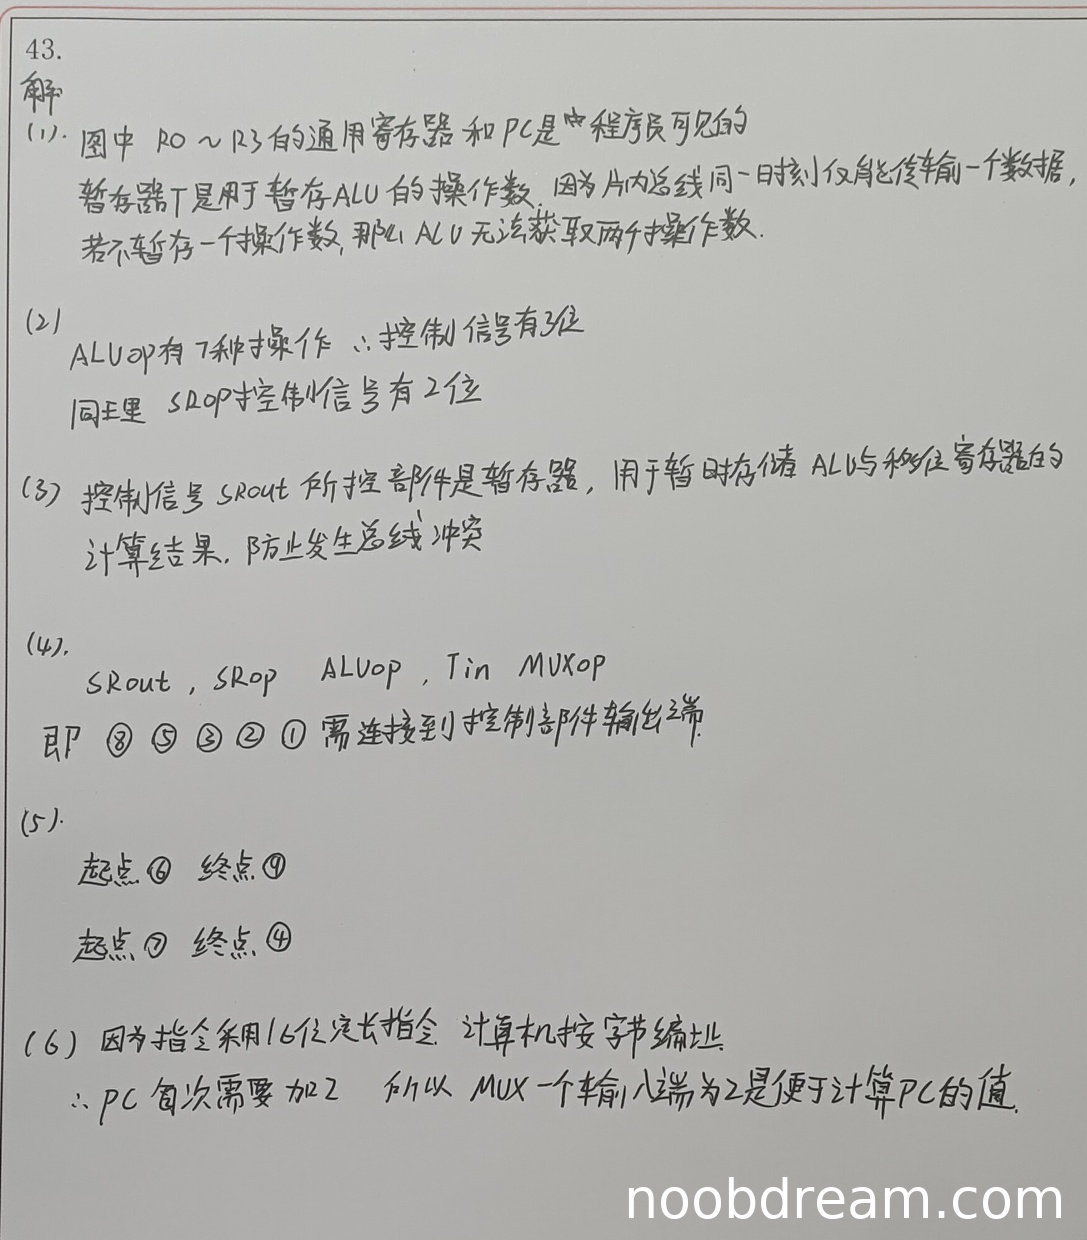 43.
解
(1). 图中 R0 ~ R3 的通用寄存器 和 PC是 程序员可见的
暂存器T是用于暂存ALU的操作数. 因为片内总线同一时刻仅能传输一个数据,
若不暂存一个操作数, 那么 ALU 无法获取两个操作数.
(2)
ALUop有7种操作 ∴控制信号有3位
同理 SRop控制信号有2位
(3) 控制信号 SRout 所控部件是暂存器, 用于暂时存储 ALU与移位寄存器的
计算结果. 防止发生总线冲突
(4).
SRout , SRop ALUop , Tin MUXop
即 ⑧ ⑤ ③ ② ① 需连接到控制部件输出端.
(5).
起点⑥ 终点⑨
起点⑦ 终点④
(6) 因为指令采用16位定长指令. 计算机按字节编址.
∴ PC 每次需要加2 所以 MUX 一个输入端为2是便于计算PC的值.
noobdream.com